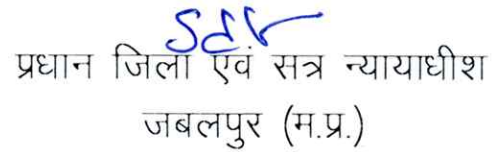 Sd/-
प्रधान जिला एवं सत्र न्यायाधीश
जबलपुर (म.प्र.)